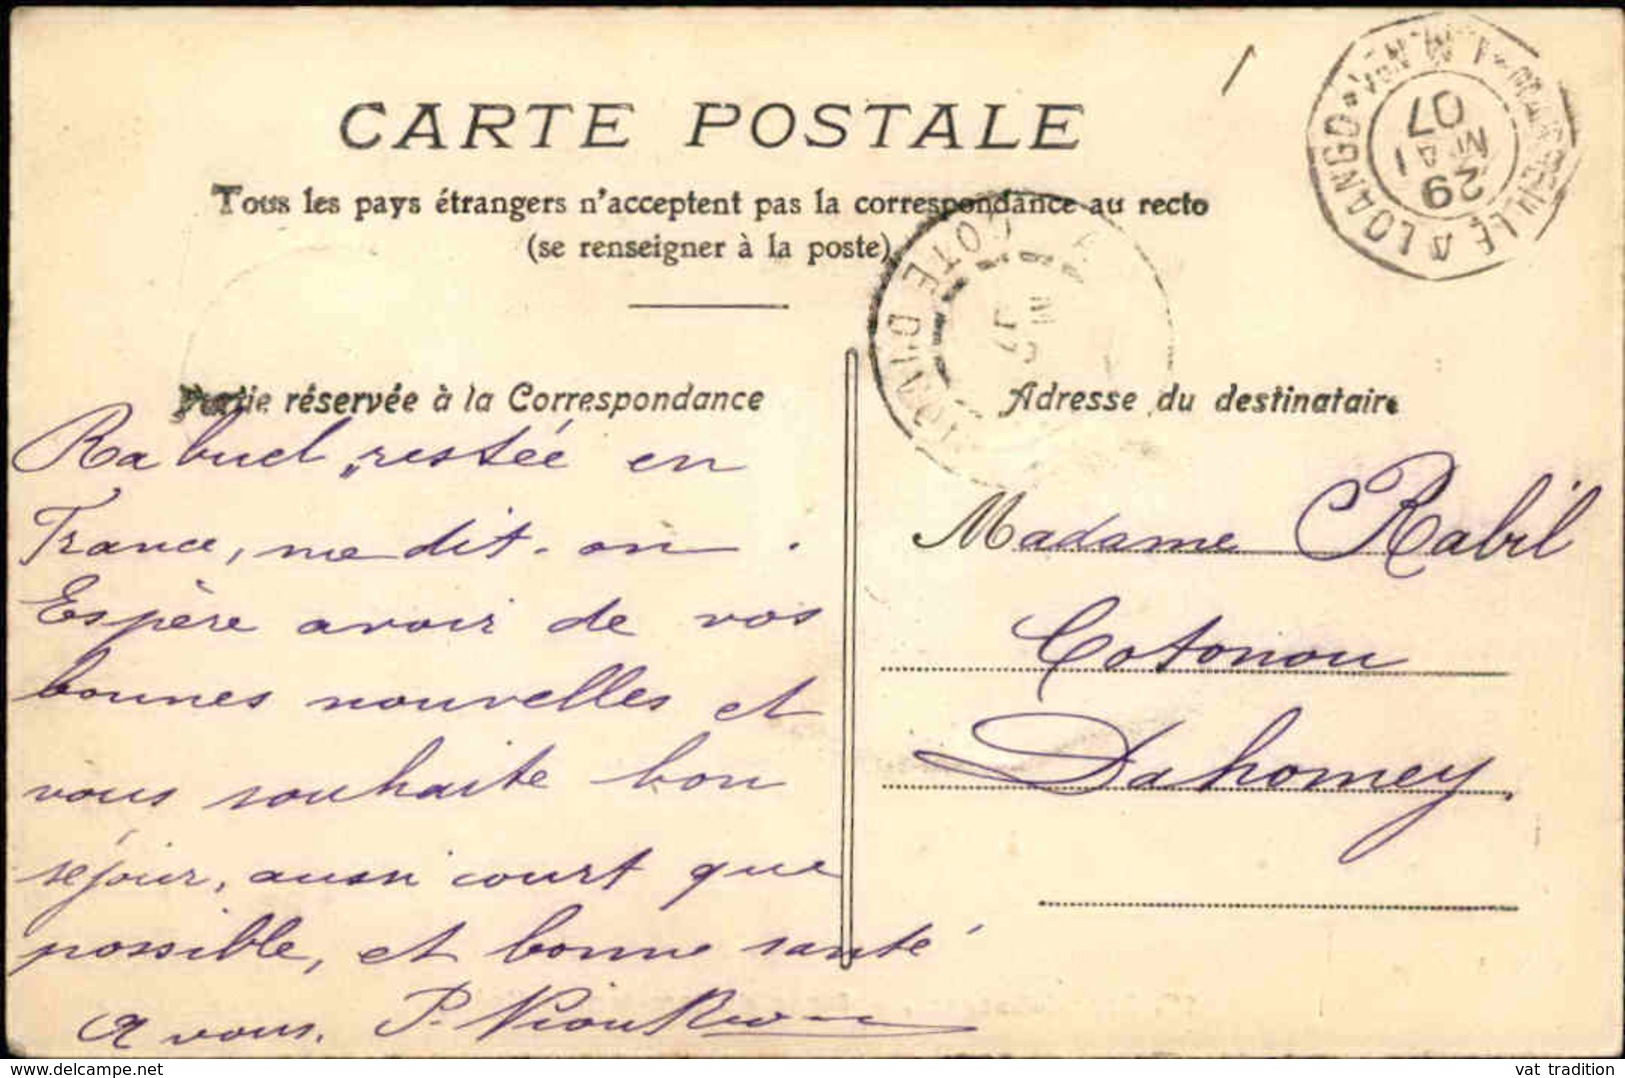 CARTE POSTALE
Tous les pays étrangers n'acceptent pas la correspondance au recto
(se renseigner à la poste)
LOANGO
29
MAI
07
COTE D'IVOIRE
Partie réservée à la Correspondance
Rabuel, restée en
France, me dit-on.
Espère avoir de vos
bonnes nouvelles et
vous souhaite bon
séjour, aussi court que
possible, et bonne santé
A vous. P.
Adresse du destinataire
Madame Rabil
Cotonou
Dahomey
delcampe.net
vat_tradition